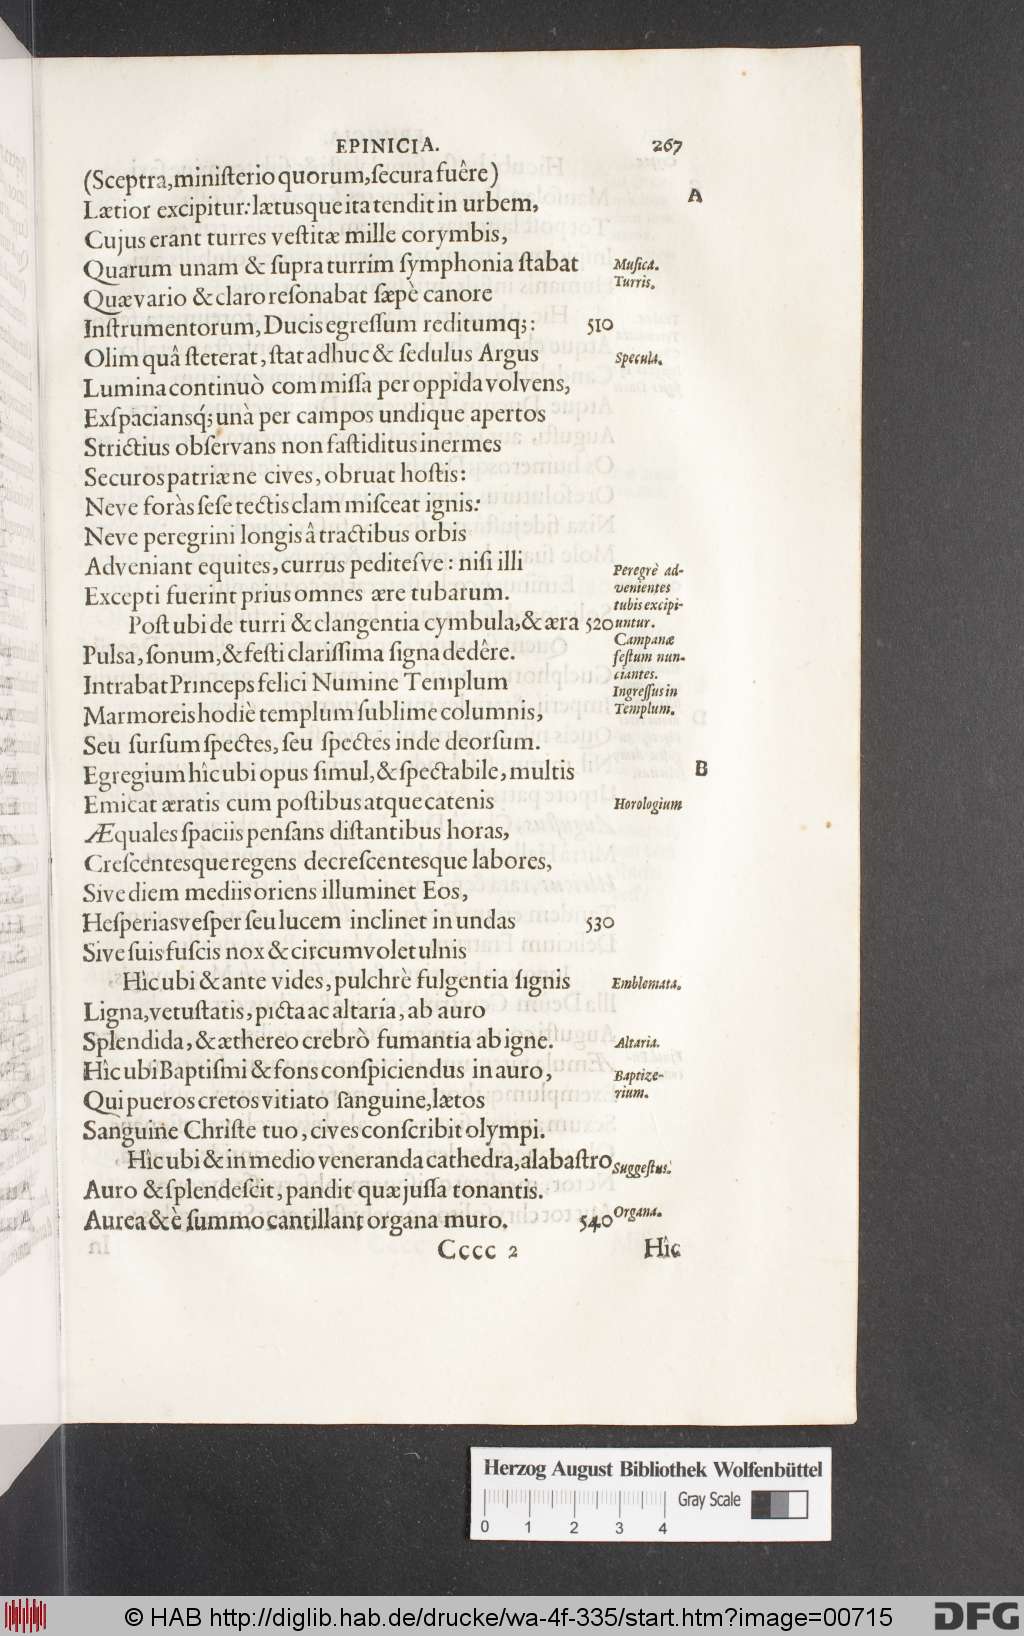 EPINICIA. 267
(Sceptra, miniſterio quorum, ſecura fuêre)
Lætior excipitur: lætusque ita tendit in urbem, A
Cujus erant turres veſtitæ mille corymbis,
Quarum unam & ſupra turrim ſymphonia ſtabat Muſica.
Turris.
Quæ vario & claro reſonabat ſæpè canore
Inſtrumentorum, Ducis egreſſum reditumq;: 510
Olim quâ ſteterat, ſtat adhuc & ſedulus Argus Specula.
Lumina continuò commiſſa per oppida volvens,
Exſpaciansq́; unà per campos undique apertos
Strictius obſervans non faſtiditus inermes
Securos patriæ ne cives, obruat hoſtis:
Neve foràs ſeſe tectis clam miſceat ignis:
Neve peregrini longis â tractibus orbis
Adveniant equites, currus peditesve: niſi illi Peregrè ad-
venientes
Excepti fuerint prius omnes ære tubarum. tubis excipi-
Poſt ubi de turri & clangentia cymbula, & æra 520 untur.
Campanæ
Pulsa, ſonum, & feſti clariſſima ſigna dedêre. feſtum nun-
ciantes.
Intrabat Princeps felici Numine Templum Ingreſſus in
Marmoreis hodiè templum ſublime columnis, Templum.
Seu ſurſum ſpectes, ſeu ſpectes inde deorſum.
Egregium hîc ubi opus ſimul, & ſpectabile, multis B
Emicat æratis cum poſtibus atque catenis Horologium
Æquales ſpaciis penſans diſtantibus horas,
Creſcentesque regens decreſcentesque labores,
Sive diem mediis oriens illuminet Eos,
Heſperias veſper ſeu lucem inclinet in undas 530
Sive ſuis fuſcis nox & circumvolet ulnis
Hîc ubi & ante vides, pulchrè fulgentia ſignis Emblemata.
Ligna, vetuſtatis, picta ac altaria, ab auro
Splendida, & æthereo crebrò fumantia ab igne. Altaria.
Hîc ubi Baptiſmi & fons conſpiciendus in auro, Baptize-
rium.
Qui pueros cretos vitiato ſanguine, lætos
Sanguine Chriſte tuo, cives conſcribit olympi.
Hîc ubi & in medio veneranda cathedra, alabaſtro Suggeſtus.
Auro & ſplendeſcit, pandit quæ juſſa tonantis.
Aurea & è ſummo cantillant organa muro. 540 Organa.
Cccc 2 Hîc
Herzog August Bibliothek Wolfenbüttel
Gray Scale
0 1 2 3 4
© HAB http://diglib.hab.de/drucke/wa-4f-335/start.htm?image=00715
DFG